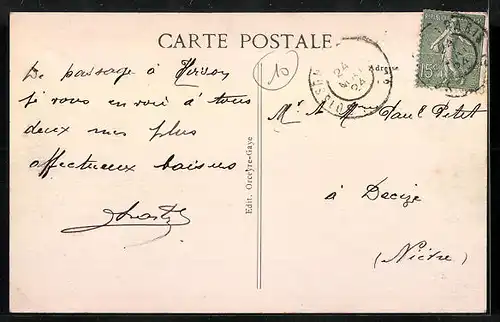 CARTE POSTALE
De passage à Hirson
je vous envoie à tous
deux mes plus
affectueux baisers
10
Edit. Orceyre-Gaye
Adresse
24
24
15
Mr & Mme Paul Petit
à Decize
(Nièvre)